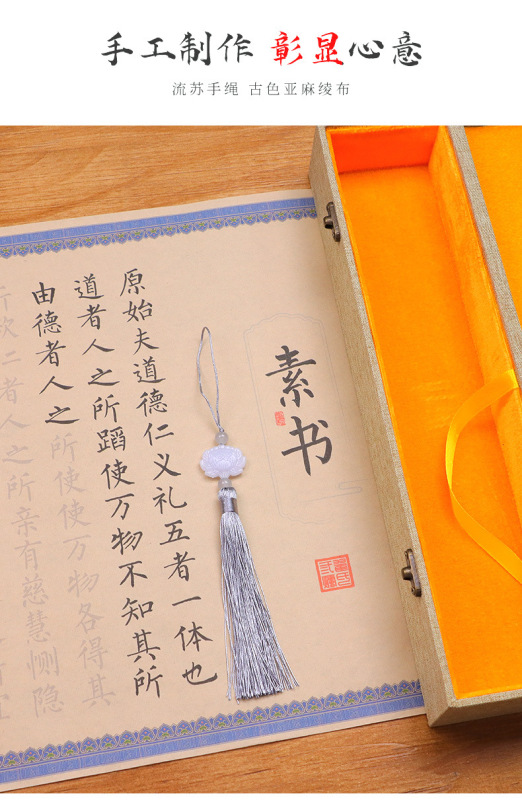 手工制作 彰显心意
流苏手绳 古色亚麻绫布
素书
原始夫道德仁义礼五者一体也
道者人之所蹈使万物不知其所
由德者人之所使使万物各得其
欲二者人之所亲有慈慧恻隐